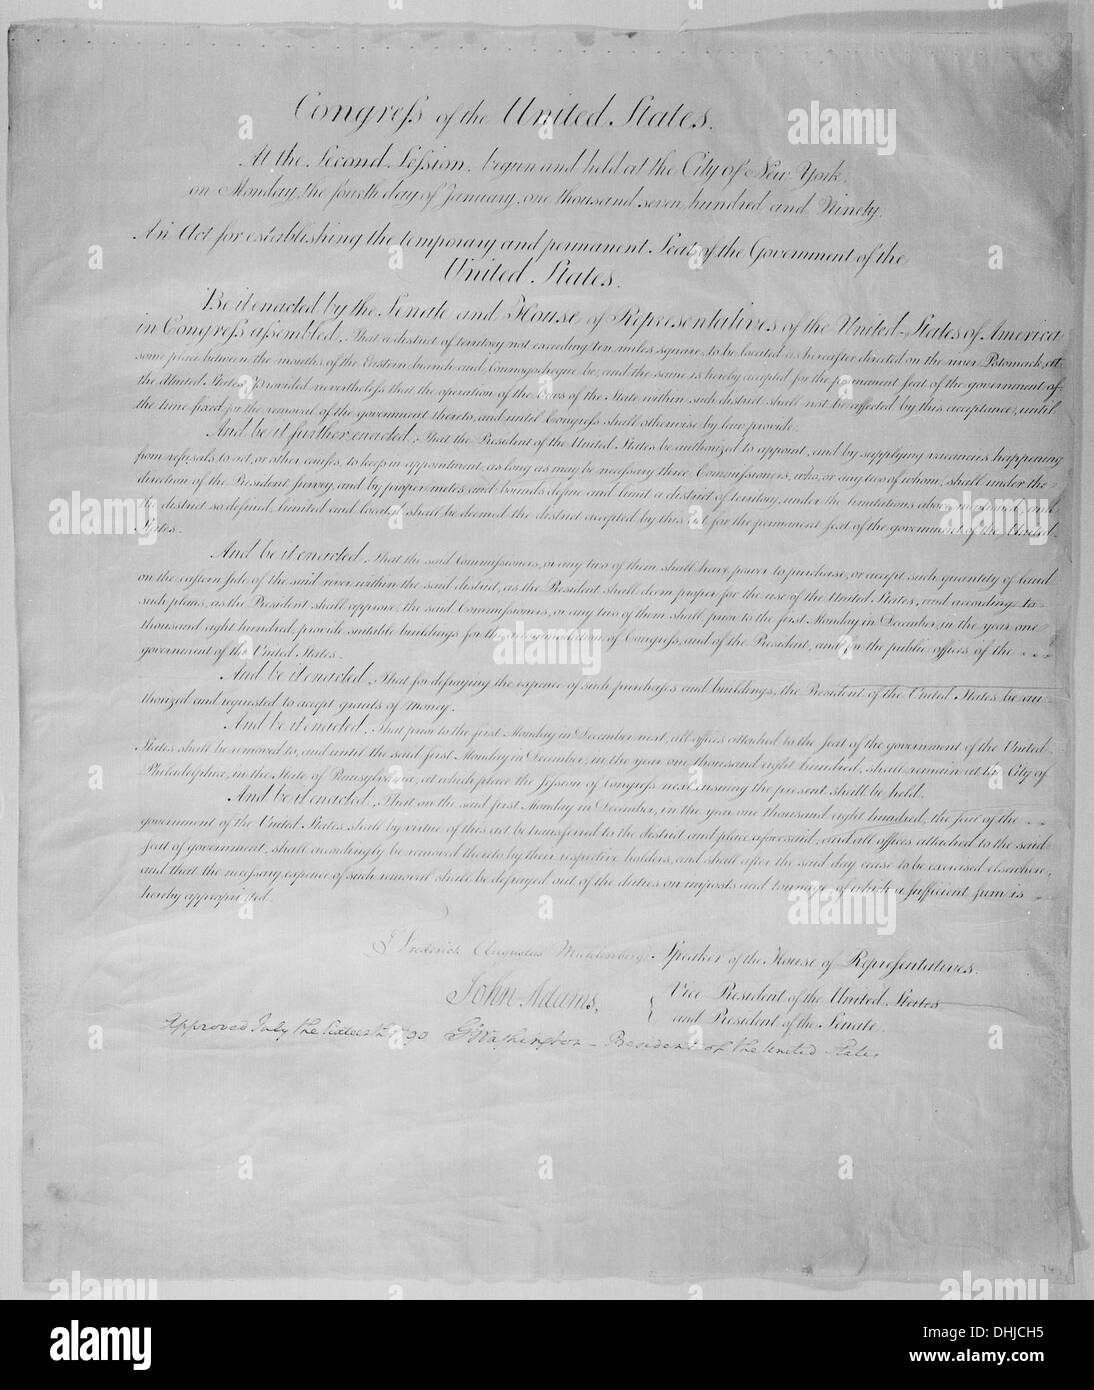 Congress of the United States.
At the Second Session, begun and held at the City of New York,
on Monday, the fourth day of January, one thousand seven hundred and Ninety.
An Act for establishing the temporary and permanent Seat of the Government of the
United States.
Be it enacted by the Senate and House of Representatives of the United States of America
in Congress assembled, That a district of territory not exceeding ten miles square, to be located as hereafter directed on the river Potomack, at
some place between the mouths of the Eastern branch and Connogochegue be, and the same is hereby accepted for the permanent seat of the government of
the United States, Provided nevertheless that the operation of the laws of the State within such district shall not be affected by this acceptance, until
the time fixed for the removal of the government thereto, and until Congress shall otherwise by law provide.
And be it further enacted, That the President of the United States be authorized to appoint, and by supplying vacancies happening
from refusals to act, or other causes, to keep in appointment, as long as may be necessary three Commissioners, who, or any two of whom, shall under the
direction of the President survey, and by proper metes and bounds define and limit a district of territory, under the limitations above mentioned, and
the district so defined, limited and located, shall be deemed the district accepted by this act for the permanent seat of the government of the United
States.
And be it enacted, That the said Commissioners, or any two of them shall have power to purchase, or accept such quantity of land
on the eastern side of the said river within the said district, as the President shall deem proper for the use of the United States, and according to
such plans, as the President shall approve, the said Commissioners, or any two of them shall, prior to the first Monday in December, in the year one
thousand eight hundred, provide suitable buildings for the accommodation of Congress, and of the President, and for the public offices of the
government of the United States.
And be it enacted, That for defraying the expence of such purchases and buildings, the President of the United States be au-
thorized and requested to accept grants of Money.
And be it enacted, That prior to the first Monday in December next, all offices attached to the seat of the government of the United
States shall be removed to, and until the said first Monday in December, in the year one thousand eight hundred, shall remain at the City of
Philadelphia, in the State of Pennsylvania, at which place the Session of Congress next ensuing the present shall be held.
And be it enacted, That on the said first Monday in December, in the year one thousand eight hundred, the seat of the
government of the United States shall by virtue of this act be transferred to the district and place aforesaid, and all offices attached to the said
seat of government, shall accordingly be removed thereto by their respective holders, and shall after the said day cease to be exercised elsewhere,
and that the necessary expence of such removal shall be defrayed out of the duties on imposts and tonnage of which a sufficient sum is
hereby appropriated.
Frederick Augustus Muhlenberg. Speaker of the House of Representatives.
John Adams, Vice President of the United States
and President of the Senate.
Approved July the Sixteenth 1790 G. Washington - President of the United States
alamy
www.alamy.com
Image ID: DHJCH5